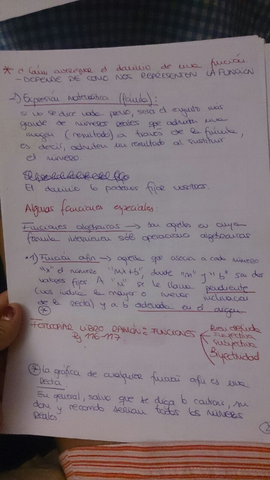 * ¿Cómo averiguar el dominio de una función?
- DEPENDE DE CÓMO NOS REPRESENTEN LA FUNCIÓN
-) Expresión matemática (fórmula):
Si no se dice nada, será el conjunto más
grande de números reales que admiten una
imagen (resultado) a través de la fórmula,
es decir, admiten un resultado al sustituir
el número.
El dominio lo podemos fijar nosotros.
Algunas funciones especiales
Funciones algebraicas → son aquellas en cuya
fórmula intervienen sólo operaciones algebraicas
1) Función afín → aquella que asocia a cada número
"x" el número "mx+b", donde "m" y "b" son dos
valores fijos. A "m" se le llama pendiente
(nos indica la mayor o menor inclinación
de la recta) y a b ordenada en el origen
FOTOCOPIA LIBRO FUNCIONES
Pg 116-117
Bien definida
inyectiva
subyectiva
Biyectividad
* la gráfica de cualquier función afín es una
recta
En general, salvo que se diga lo contrario, su
dom y recorrido serían todos los números
reales